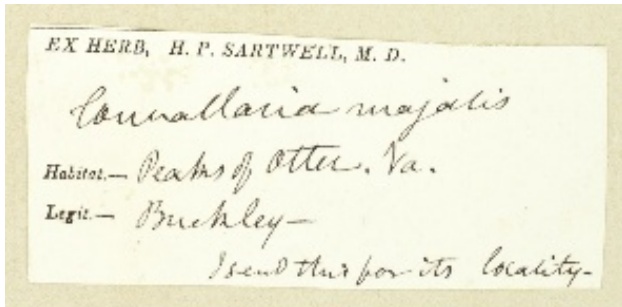 EX HERB, H. P. SARTWELL, M. D.
Convallaria majalis
Habitat.— Peaks of Otter. Va.
Legit.— Buckley—
I send this for its locality-